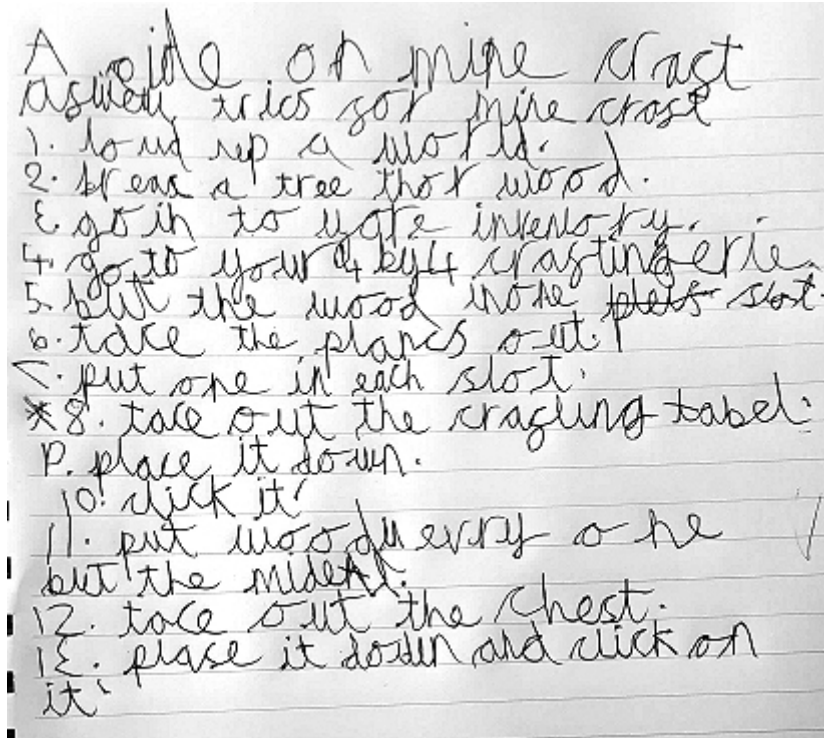 A gide on mine craft
aswell trics for mine craft
1. loud up a world.
2. break a tree thor wood.
3. go in to yore invenory.
4. go to your 4 by 4 crafting erie.
5. put the wood inone slot.
6. tace the plancs out.
7. put one in each slot.
8. tace out the crafting tabel.
9. place it down.
10. click it.
11. put wood in evry one
but the midell.
12. tace out the chest.
13. plase it down and click on
it.